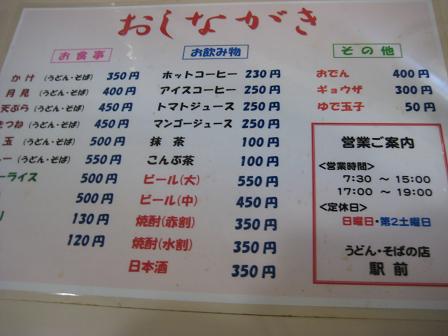 おしながき
お食事
かけ(うどん・そば) 350円
月見(うどん・そば) 400円
天ぷら(うどん・そば) 450円
つね(うどん・そば) 450円
玉(うどん・そば) 500円
ー(うどん・そば) 550円
ーライス 500円
500円
り 130円
120円
お飲み物
ホットコーヒー 230円
アイスコーヒー 250円
トマトジュース 250円
マンゴージュース 250円
抹茶 100円
こんぶ茶 100円
ビール(大) 550円
ビール(中) 450円
焼酎(赤割) 350円
焼酎(水割) 350円
日本酒 350円
その他
おでん 400円
ギョウザ 300円
ゆで玉子 50円
営業ご案内
<営業時間>
7:30 ~ 15:00
17:00 ~ 19:00
<定休日>
日曜日・第2土曜日
うどん・そばの店
駅前